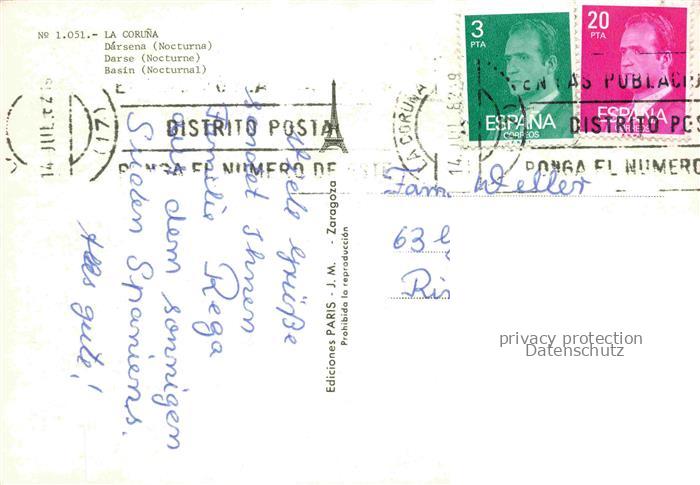 Nº 1.051.- LA CORUÑA
Dársena (Nocturna)
Darse (Nocturne)
Basin (Nocturnal)
Viele Grüße
sendet Ihnen
Familie Rega
aus dem sonnigen
Süden Spaniens.
Alles gute!
Ediciones PARIS - J. M. - Zaragoza
Prohibida la reproducción
3
PTA
ESPAÑA
CORREOS
20
PTA
ESPAÑA
CORREOS
DISTRITO POSTAL
PONGA EL NUMERO DE
14 JUL
(17)
LA CORUÑA
EN LAS POBLACI
DISTRITO POS
PONGA EL NUMERO
Fam. Weller
63
privacy protection
Datenschutz